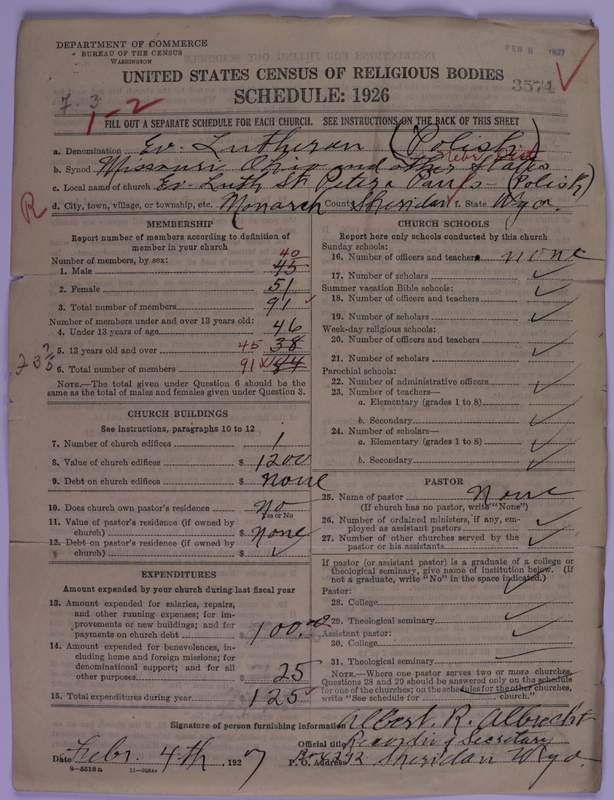 DEPARTMENT OF COMMERCE
BUREAU OF THE CENSUS
WASHINGTON
FEB 8 1927
3574
UNITED STATES CENSUS OF RELIGIOUS BODIES
SCHEDULE: 1926
7-3
1-2
FILL OUT A SEPARATE SCHEDULE FOR EACH CHURCH. SEE INSTRUCTIONS ON THE BACK OF THIS SHEET
a. Denomination Ev. Lutheran (Polish)
b. Synod Missouri, Ohio and other States
c. Local name of church Ev. Luth St. Peters Paris (Polish)
R
d. City, town, village, or township, etc. Monarch County Sheridan f. State Wyo.
MEMBERSHIP
Report number of members according to definition of
member in your church
Number of members, by sex:
40
1. Male 45
2. Female 51
3. Total number of members 91
Number of members under and over 13 years old:
4. Under 13 years of age 46
5. 13 years old and over 45 38
6. Total number of members 91 84
NOTE.—The total given under Question 6 should be the
same as the total of males and females given under Question 3.
CHURCH BUILDINGS
See instructions, paragraphs 10 to 12
7. Number of church edifices 1
8. Value of church edifices $ 1200
9. Debt on church edifices $ none
10. Does church own pastor's residence no
Yes or No
11. Value of pastor's residence (if owned by
church) $ none
12. Debt on pastor's residence (if owned by
church) $ ✓
EXPENDITURES
Amount expended by your church during last fiscal year
13. Amount expended for salaries, repairs,
and other running expenses; for im-
provements or new buildings; and for
payments on church debt $ 100.00
14. Amount expended for benevolences, in-
cluding home and foreign missions; for
denominational support; and for all
other purposes $ 25
15. Total expenditures during year $ 125
CHURCH SCHOOLS
Report here only schools conducted by this church
Sunday schools:
16. Number of officers and teachers none
17. Number of scholars ✓
Summer vacation Bible schools:
18. Number of officers and teachers ✓
19. Number of scholars ✓
Week-day religious schools:
20. Number of officers and teachers
21. Number of scholars ✓
Parochial schools:
22. Number of administrative officers ✓
23. Number of teachers—
a. Elementary (grades 1 to 8) ✓
b. Secondary ✓
24. Number of scholars—
a. Elementary (grades 1 to 8) ✓
b. Secondary ✓
PASTOR
25. Name of pastor None
(If church has no pastor, write "None")
26. Number of ordained ministers, if any, em-
ployed as assistant pastors ✓
27. Number of other churches served by the
pastor or his assistants ✓
If pastor (or assistant pastor) is a graduate of a college or
theological seminary, give name of institution below. (If
not a graduate, write "No" in the space indicated.)
Pastor:
28. College ✓
29. Theological seminary ✓
Assistant pastor:
30. College ✓
31. Theological seminary ✓
NOTE.—Where one pastor serves two or more churches,
Questions 28 and 29 should be answered only on the schedule
for one of the churches; on the schedules for the other churches,
write "See schedule for church."
Signature of person furnishing information Albert R. Albrecht
Official title Recording Secretary
Date Febr. 4th, 1927 P. O. Address Box 332 Sheridan Wyo.
8-5518a 11-9684a